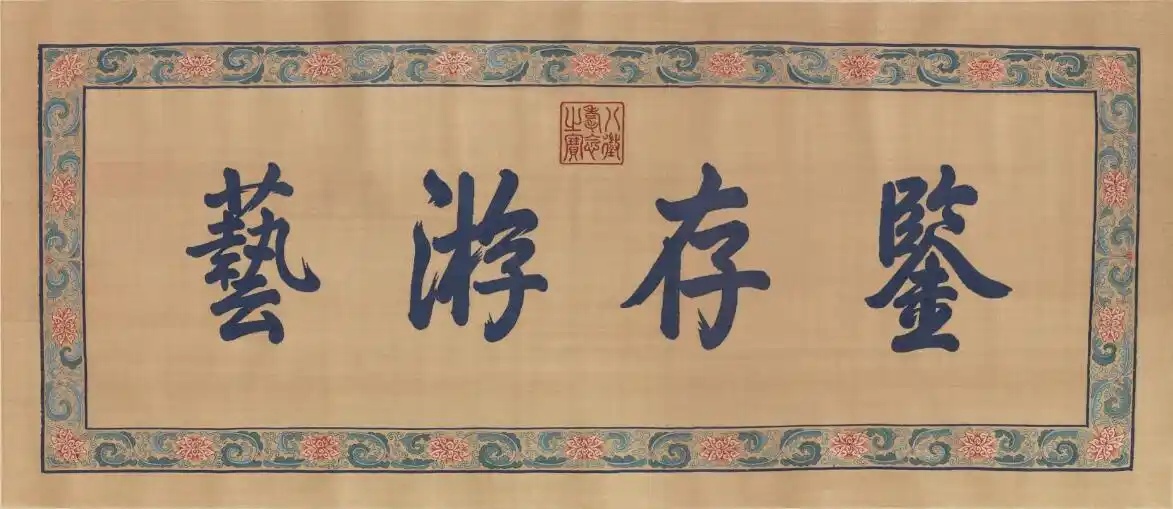 鑒存游藝
八徵耄念之寶